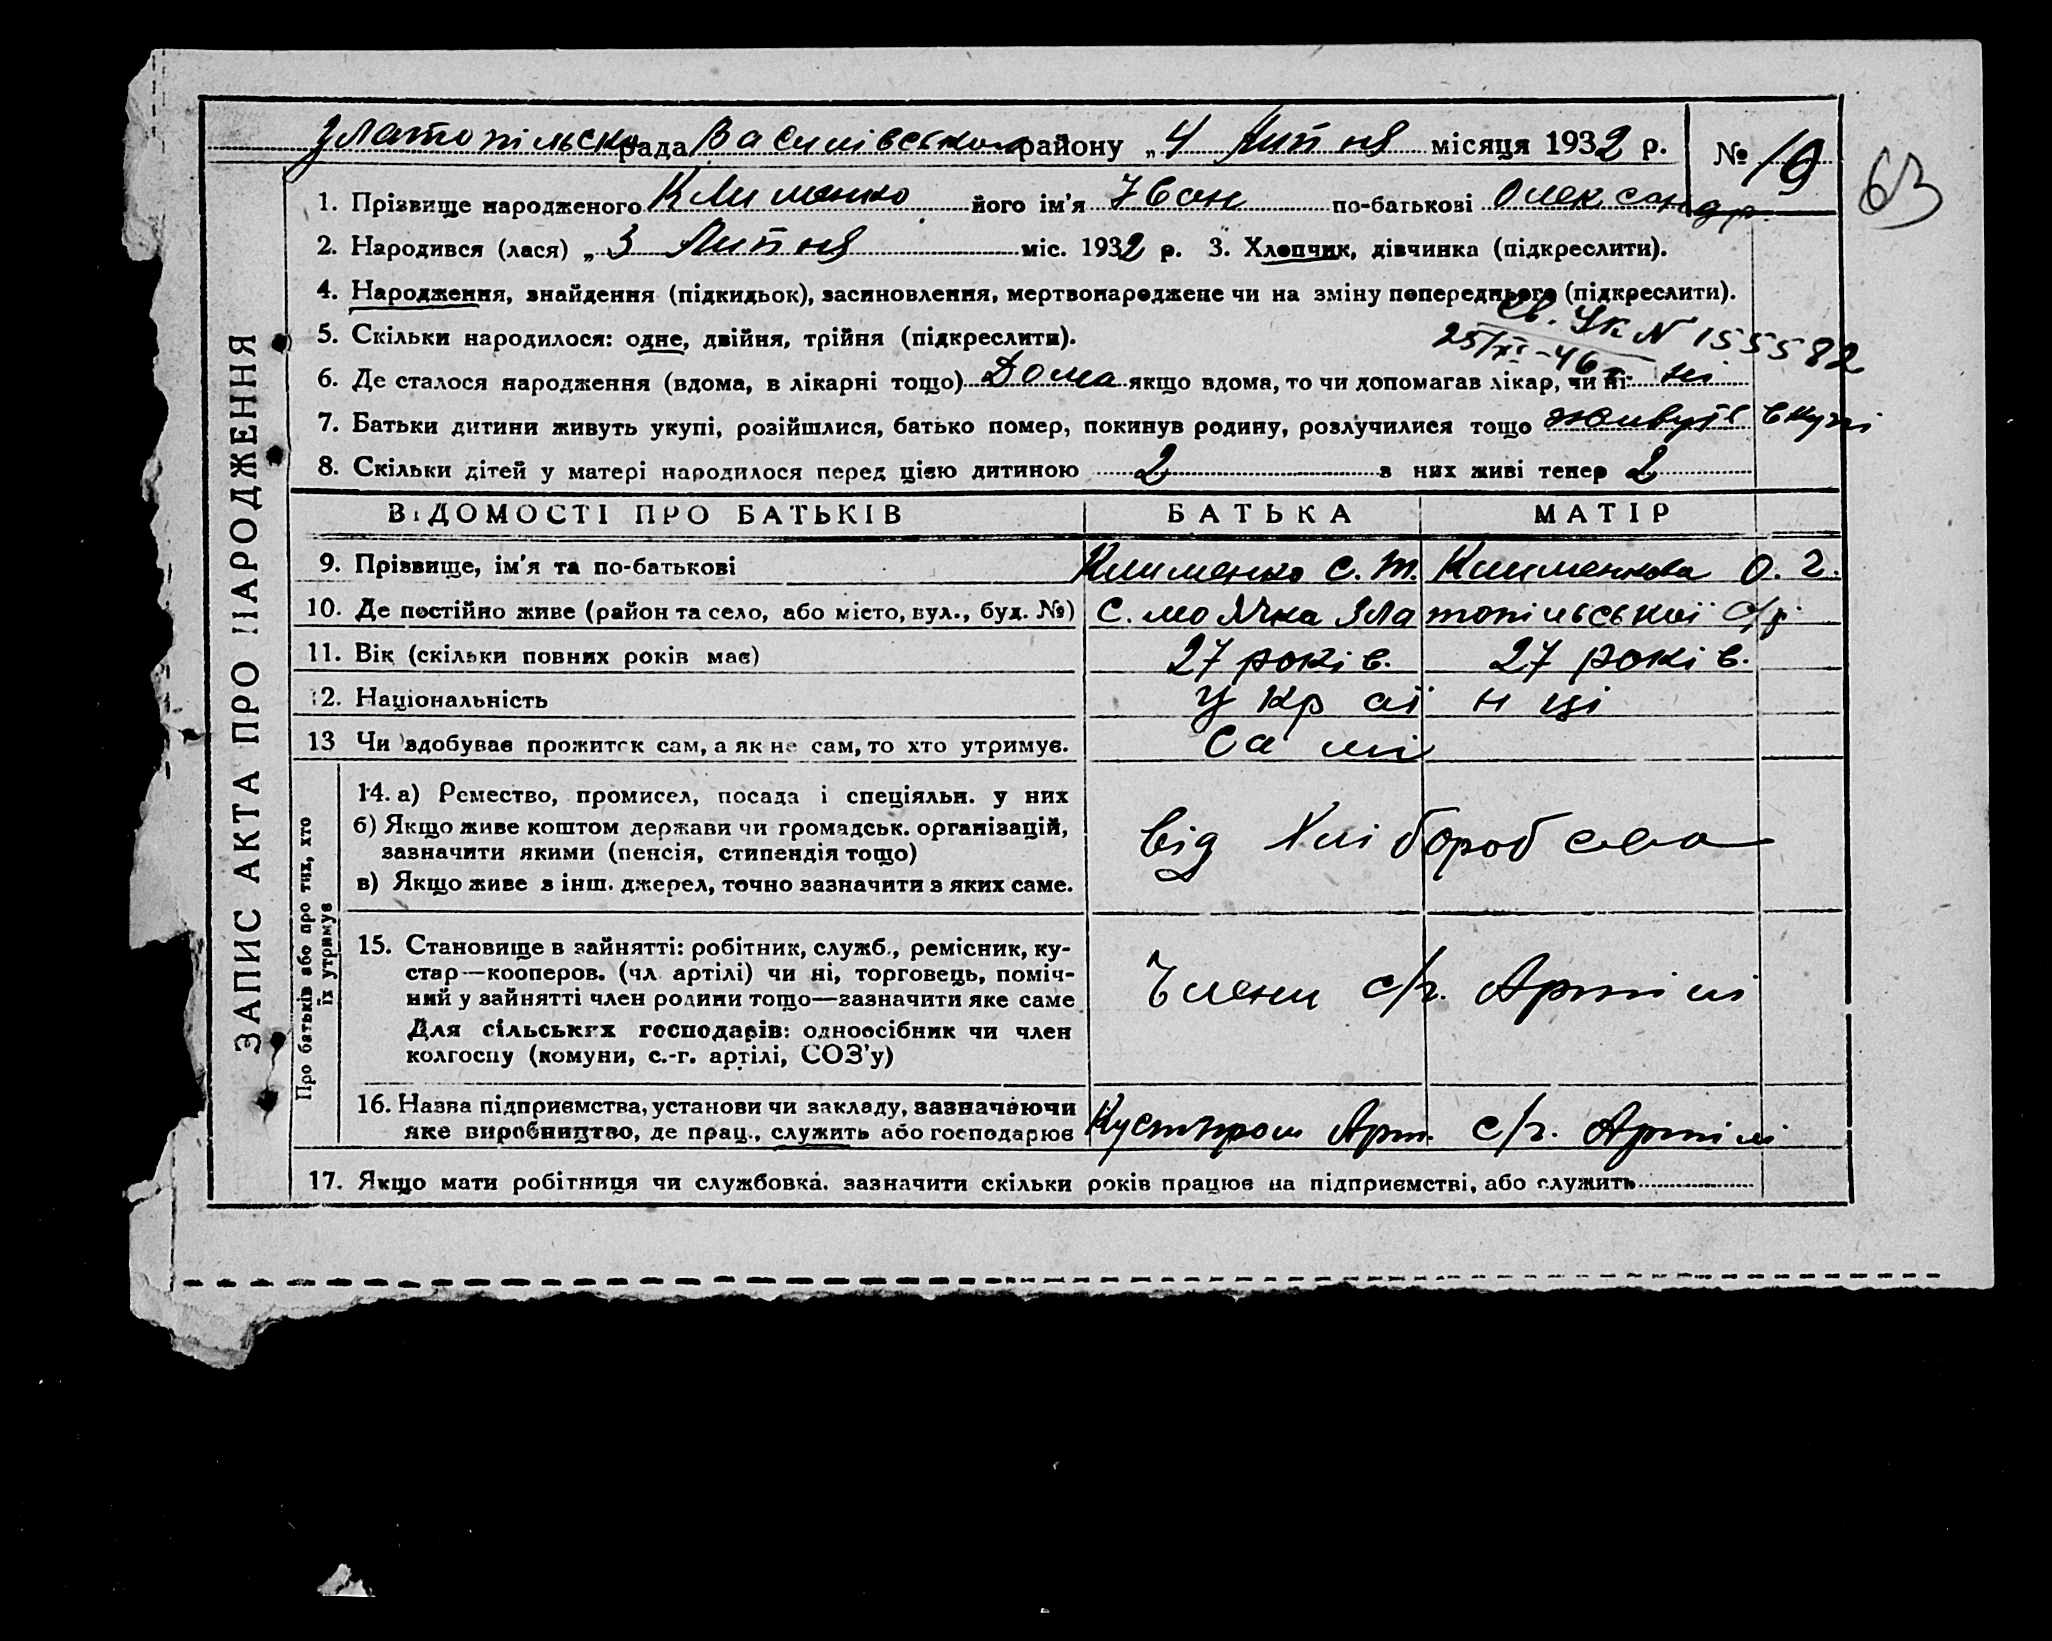 Златопільська рада Василівського району „4 Липня місяця 1932 р. № 19
63
1. Прізвище народженого Клименко його ім'я Іван по-батькові Олександр.
2. Народився (лася) „ 3 Липня міс. 1932 р. 3. Хлопчик, дівчинка (підкреслити).
4. Народження, знайдення (підкидьок), засиновлення, мертвонароджене чи на зміну попереднього (підкреслити).
св. УК N 155582
5. Скільки народилося: одне, двійня, трійня (підкреслити).
25/XI-46
6. Де сталося народження (вдома, в лікарні тощо) Дома якщо вдома, то чи допомагав лікар, чи ні: ні
7. Батьки дитини живуть укупі, розійшлися, батько помер, покинув родину, розлучилися тощо живуть вкупі
8. Скільки дітей у матері народилося перед цією дитиною 2 з них живі тепер 2
ВІДОМОСТІ ПРО БАТЬКІВ БАТЬКА МАТІР
9. Прізвище, ім'я та по-батькові Клименко С. Т. Клименкова О. Г.
10. Де постійно живе (район та село, або місто, вул., буд. №) С. Молчка Златопільської С/р.
11. Вік (скільки повних років має) 27 років. 27 років.
12. Національність Українці
13 Чи здобуває прожиток сам, а як не сам, то хто утримує. Самі
14. а) Ремество, промисел, посада і спеціяльн. у них
б) Якщо живе коштом держави чи громадськ. організацій,
зазначити якими (пенсія, стипендія тощо)
в) Якщо живе з інш. джерел, точно зазначити з яких саме.
від Хліборобства
15. Становище в зайнятті: робітник, служб., ремісник, ку-
стар—кооперов. (чл артілі) чи ні, торговець, поміч-
ний у зайнятті член родини тощо—зазначити яке саме
Для сільських господарів: одноосібник чи член
колгоспу (комуни, с.-г. артілі, СОЗ'у)
Члени с/г. Артілі
16. Назва підприємства, установи чи закладу, зазначаючи
яке виробництво, де прац., служить або господарює
Кустпром Арт. с/г. Артілі
17. Якщо мати робітниця чи службовка, зазначити скільки років працює на підприємстві, або служить
ЗАПИС АКТА ПРО НАРОДЖЕННЯ
Про батьків або про тих, хто
їх утримує